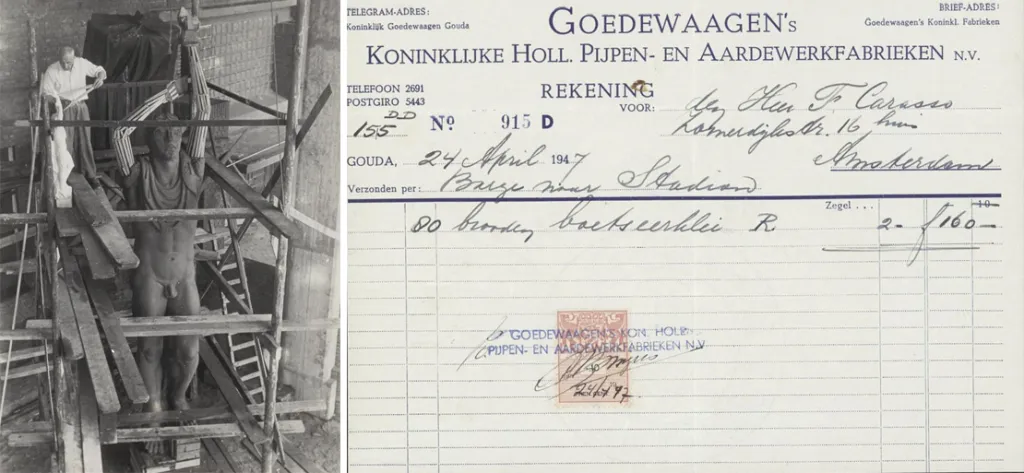 TELEGRAM-ADRES:
Koninklijk Goedewaagen Gouda
BRIEF-ADRES:
Goedewaagen's Koninkl. Fabrieken
GOEDEWAAGEN'S
KONINKLIJKE HOLL. PIJPEN- EN AARDEWERKFABRIEKEN N.V.
TELEFOON 2691
POSTGIRO 5443
REKENING
VOOR:
den Heer F. Carasso
Zomerdijkstr. 16 huis
Amsterdam
DD
155
No 915 D
GOUDA, 24 April 1947
Verzonden per: Barge naar Stadion
Zegel . . . 10
80 brooden boetseerklei R 2- f 160-
GOEDEWAAGEN'S KON. HOLL.
PIJPEN- EN AARDEWERKFABRIEKEN N.V.
40